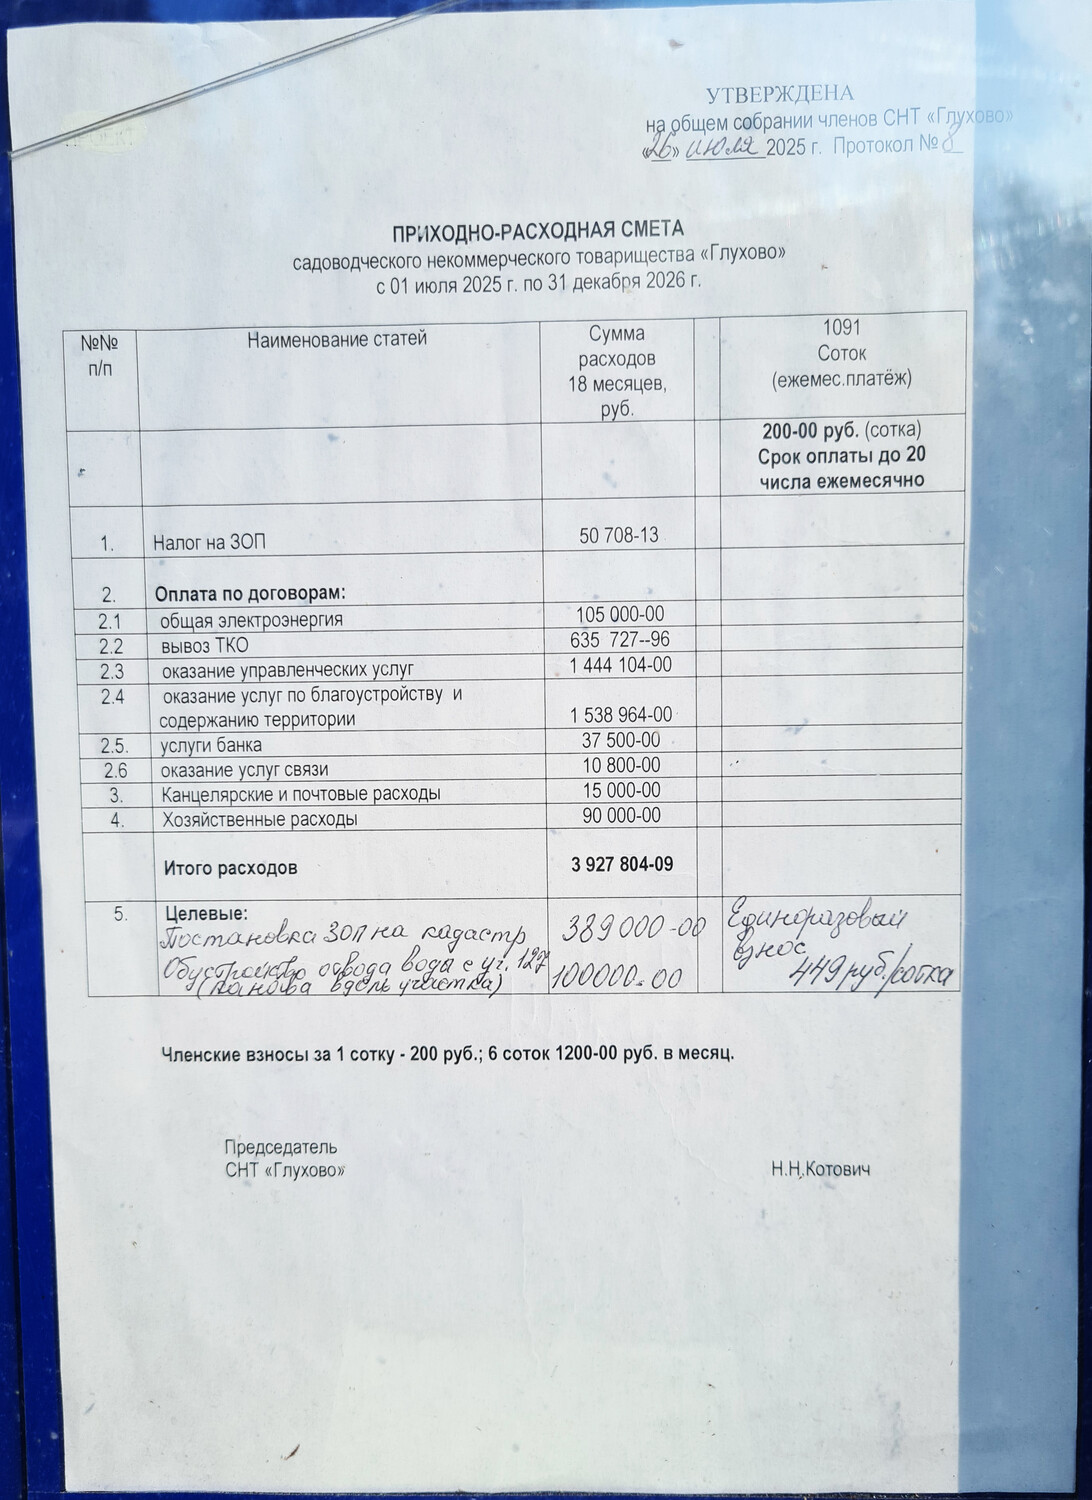 ПРОЕКТ
УТВЕРЖДЕНА
на общем собрании членов СНТ «Глухово»
«26» июля 2025 г. Протокол № 8
ПРИХОДНО-РАСХОДНАЯ СМЕТА
садоводческого некоммерческого товарищества «Глухово»
с 01 июля 2025 г. по 31 декабря 2026 г.
№№ п/п Наименование статей Сумма расходов 18 месяцев, руб. 1091 Соток (ежемес.платёж)
200-00 руб. (сотка)
Срок оплаты до 20
числа ежемесячно
1. Налог на ЗОП 50 708-13
2. Оплата по договорам:
2.1 общая электроэнергия 105 000-00
2.2 вывоз ТКО 635 727--96
2.3 оказание управленческих услуг 1 444 104-00
2.4 оказание услуг по благоустройству и
содержанию территории 1 538 964-00
2.5. услуги банка 37 500-00
2.6 оказание услуг связи 10 800-00
3. Канцелярские и почтовые расходы 15 000-00
4. Хозяйственные расходы 90 000-00
Итого расходов 3 927 804-09
5. Целевые:
Постановка ЗОП на кадастр 389000-00 Единоразовый
взнос
Обустройство отвода воды с уч. 127 100000-00 449 руб/сотка
(канава вдоль участка)
Членские взносы за 1 сотку - 200 руб.; 6 соток 1200-00 руб. в месяц.
Председатель
СНТ «Глухово» Н.Н.Котович